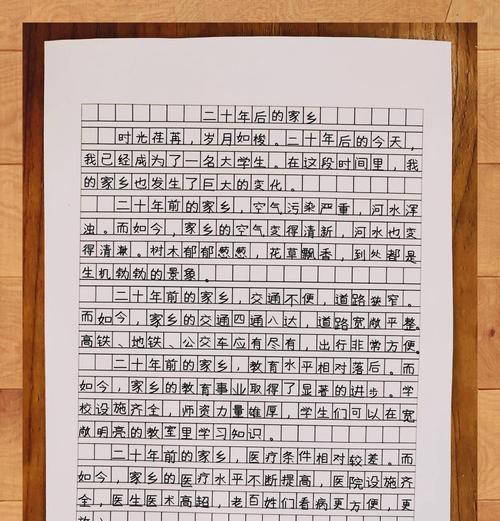 二十年后的家乡
时光荏苒，岁月如梭。二十年后的今天，
我已经成为了一名大学生。在这段时间里，我
的家乡也发生了巨大的变化。
二十年前的家乡，空气污染严重，河水浑
浊。而如今，家乡的空气变得清新，河水也变
得清澈。树木郁郁葱葱，花草飘香，到处都是
生机勃勃的景象。
二十年前的家乡，交通不便，道路狭窄。
而如今，家乡的交通四通八达，道路宽敞平整。
高铁、地铁、公交车应有尽有，出行非常方便。
二十年前的家乡，教育水平相对落后。而
如今，家乡的教育事业取得了显著的进步。学
校设施齐全，师资力量雄厚，学生们可以在宽
敞明亮的教室里学习知识。
二十年前的家乡，医疗条件相对较差。而
如今，家乡的医疗水平不断提高，医院设施齐
全，医生医术高超，老百姓们看病更方便，更